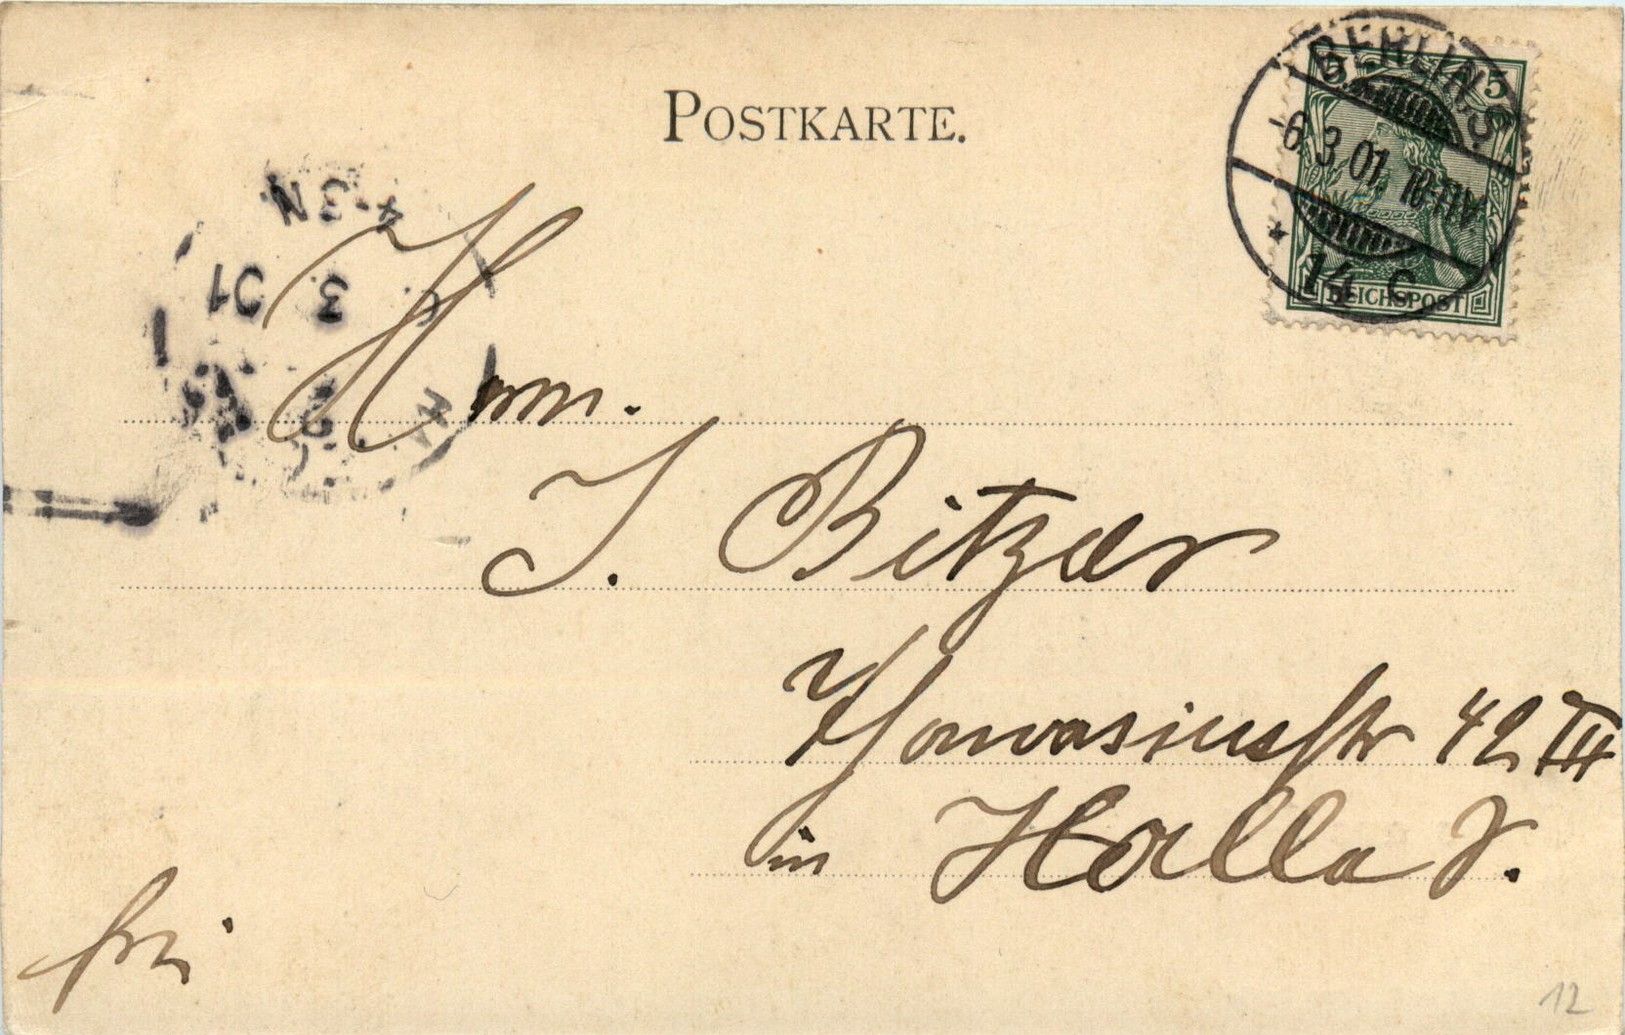 POSTKARTE.
BERLIN, S.
5 5
-6.3.01. 10-11V.
* 14 C
REICHSPOST
4-3N.
3. 01
Herrn.
J. Bitzer
42 III
in Halle S.
frei
12